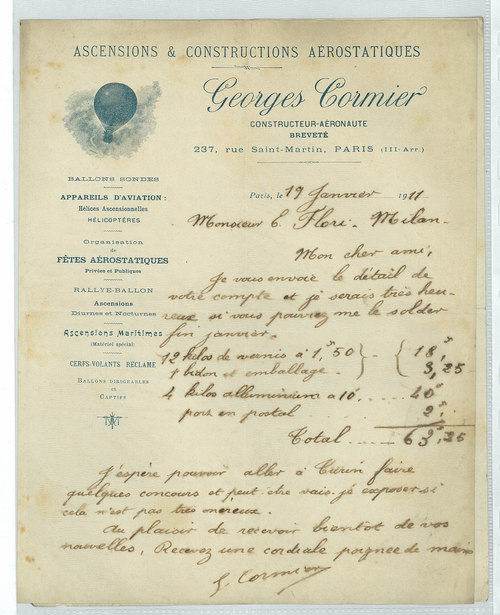 ASCENSIONS & CONSTRUCTIONS AÉROSTATIQUES
Georges Cormier
CONSTRUCTEUR-AÉRONAUTE
BREVETÉ
237, rue Saint-Martin, PARIS (III-Arr.)
BALLONS SONDES
APPAREILS D'AVIATION :
Hélices Ascensionnelles
HÉLICOPTÈRES
Organisation
de
FÊTES AÉROSTATIQUES
Privées et Publiques
RALLYE-BALLON
Ascensions
Diurnes et Nocturnes
Ascensions Maritimes
(Matériel spécial)
CERFS-VOLANTS RÉCLAME
BALLONS DIRIGEABLES
ET
CAPTIFS
Paris, le 19 Janvier 1911
Monsieur C. Flori. Milan.
Mon cher ami,
Je vous envoie le détail de
votre compte et je serais très heu-
reux si vous pouviez me le solder
fin janvier.
12 kilos de vernis à 1,50 } - { 18,
1 bidon et emballage. 3,25
4 kilos alluminium à 10. .... 40
port en postal ........ 2,
Total ...... 63,25
J'espère pouvoir aller à Turin faire
quelques concours et peut-etre vais-je exposer si
cela n'est pas très onereux.
Au plaisir de recevoir bientot de vos
nouvelles, Recevez une cordiale poignee de main
G. Cormier